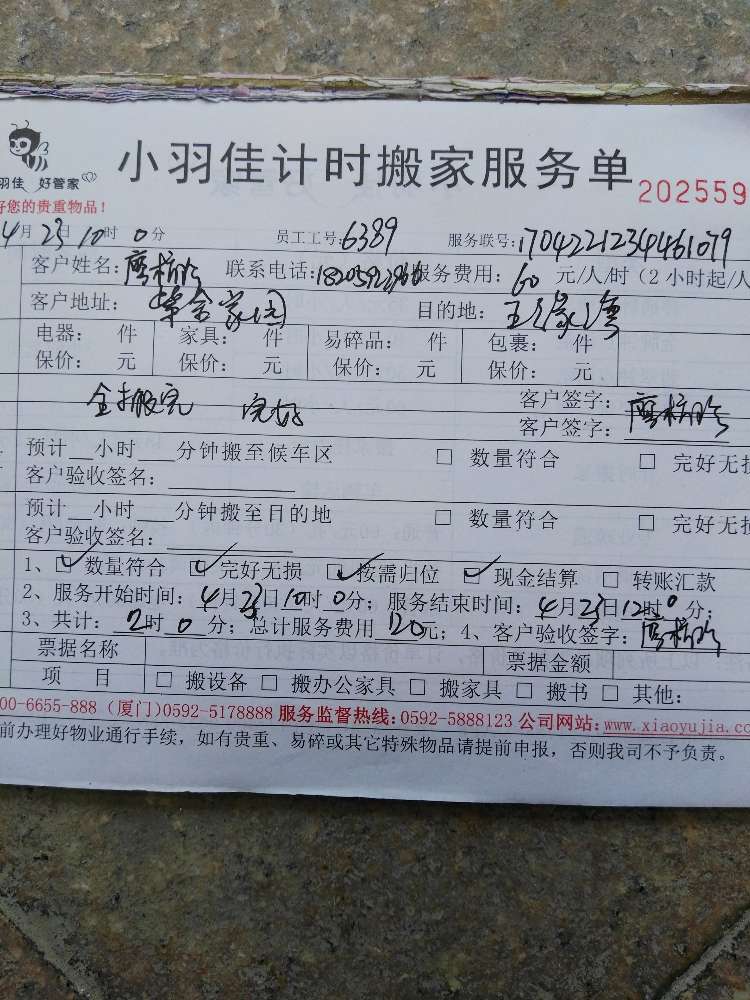 小羽佳计时搬家服务单 202559
羽佳 好管家
好您的贵重物品!
4月23日10时0分 员工工号:6389 服务联号:1704221234461079
客户姓名: 联系电话: 服务费用:60元/人/时(2小时起/人
客户地址: 家园 目的地:
电器: 件 家具: 件 易碎品: 件 包裹: 件
保价: 元 保价: 元 保价: 元 保价: 元
全搬完 完好 客户签字:
客户签字:
预计__小时___分钟搬至候车区 □ 数量符合 □ 完好无损
客户验收签名:
预计__小时___分钟搬至目的地 □ 数量符合 □ 完好无
客户验收签名:
1、☑数量符合 ☑完好无损 ☑按需归位 ☑现金结算 □ 转账汇款
2、服务开始时间:4月23日10时0分;服务结束时间:4月23日12时0分;
3、共计:2时0分;总计服务费用120元;4、客户验收签字:
票据名称 票据金额
项 目 □ 搬设备 □ 搬办公家具 □ 搬家具 □ 搬书 □ 其他:
00-6655-888(厦门)0592-5178888 服务监督热线:0592-5888123 公司网站:www.xiaoyujia.co
前办理好物业通行手续,如有贵重、易碎或其它特殊物品请提前申报,否则我司不予负责。